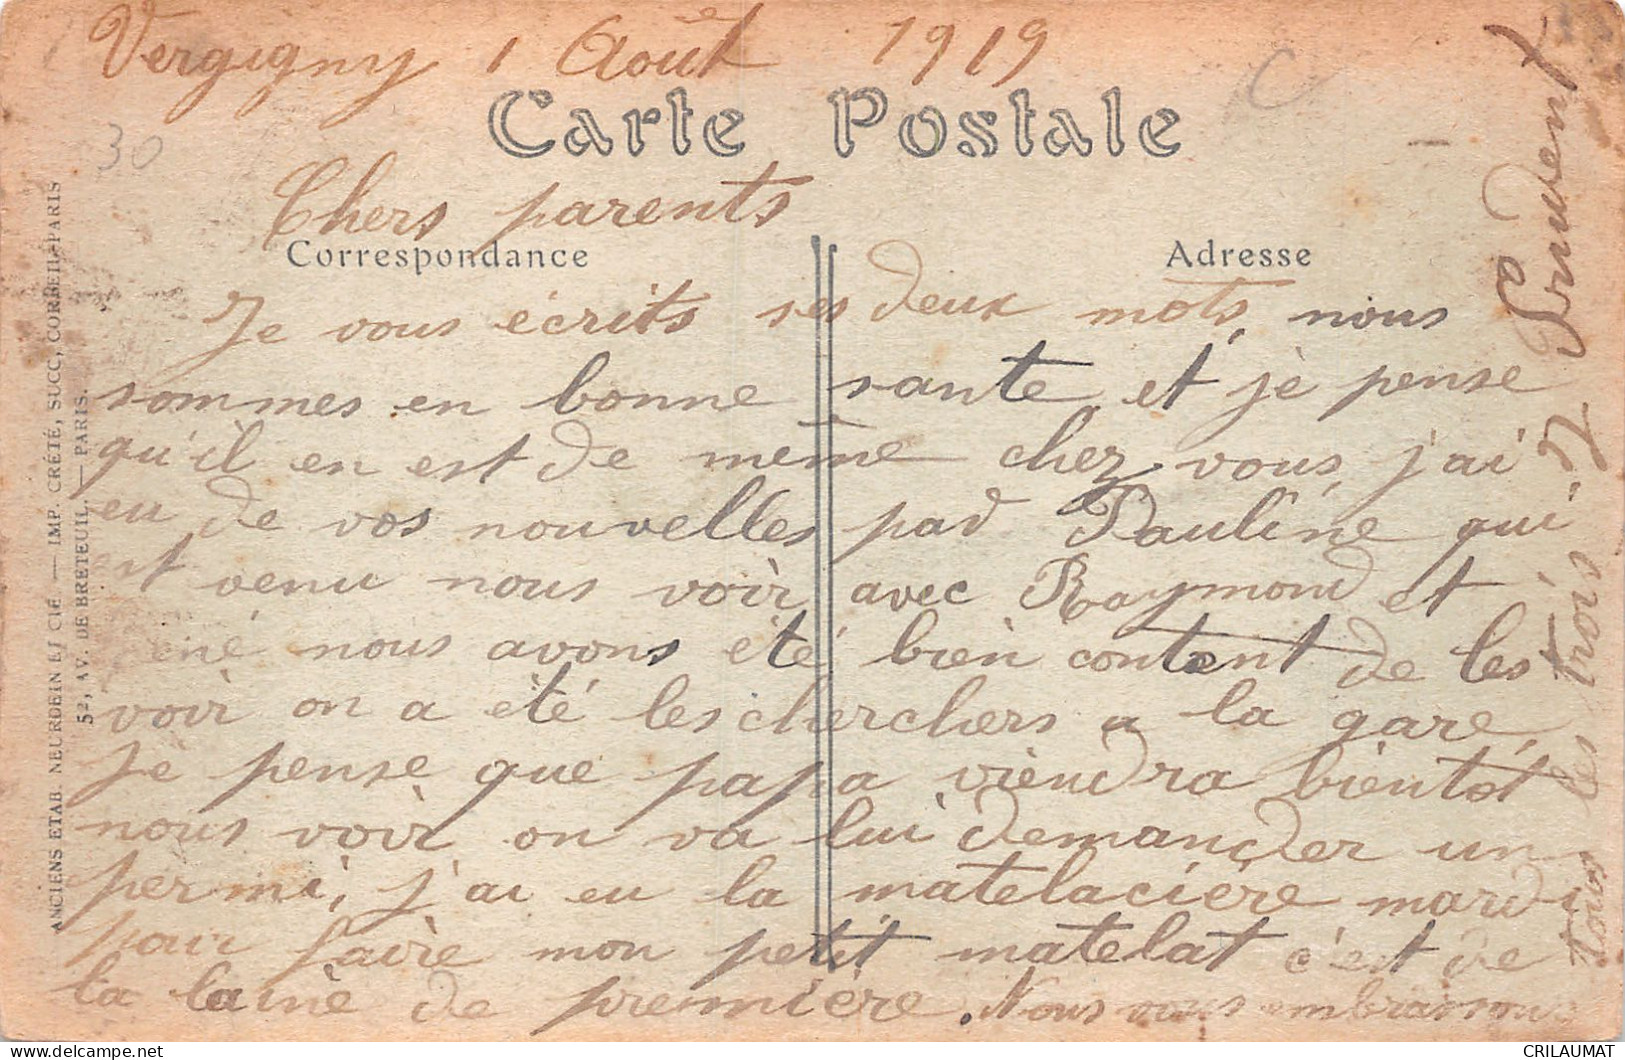 Vergigny 1 Août 1919
Carte Postale
C
30
Chers parents
Correspondance
Adresse
Je vous écrits ses deux mots, nous
sommes en bonne sante, et je pense
qu'il en est de même chez vous, j'ai
eu de vos nouvelles pad Pauline qui
est venu nous voir avec Raymond et
ené nous avons été bien content de les
voir on a été les cherchers a la gare,
Je pense que papa viendra bientôt
nous voir on va lui demander un
permi, j'ai eu la matelacière mardi
pour faire mon petit matelat c'est de
la laine de première. Nous vous embrassons
tous les trois
Prudent
ANCIENS ETAB. NEURDEIN ET CIE — IMP. CRÉTÉ, SUCC, CORBEIL-PARIS
52, AV. DE BRETEUIL. — PARIS.
CRILAUMAT